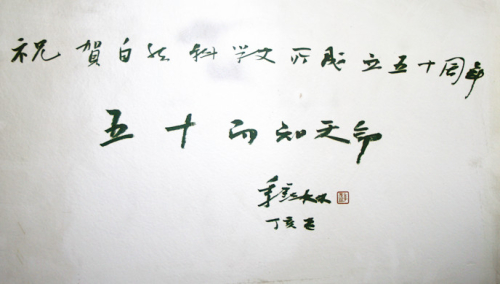 祝賀自然科学史所成立五十周年
五十而知天命
丁亥